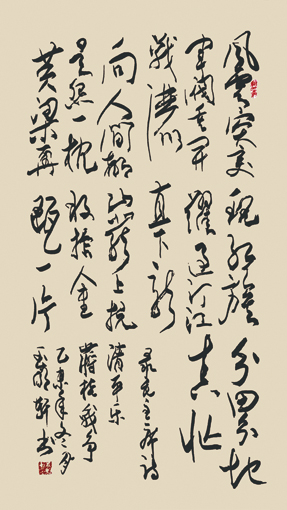 風雲突变
軍阀重开
战洒
向人间都
是怨一枕
黄粱再
现红旗
躍过汀江
直下龙
岩上杭
收拾金
瓯一片
分田分地
真忙
录毛主席诗
清平乐
蒋桂战争
乙未年冬月
轩书